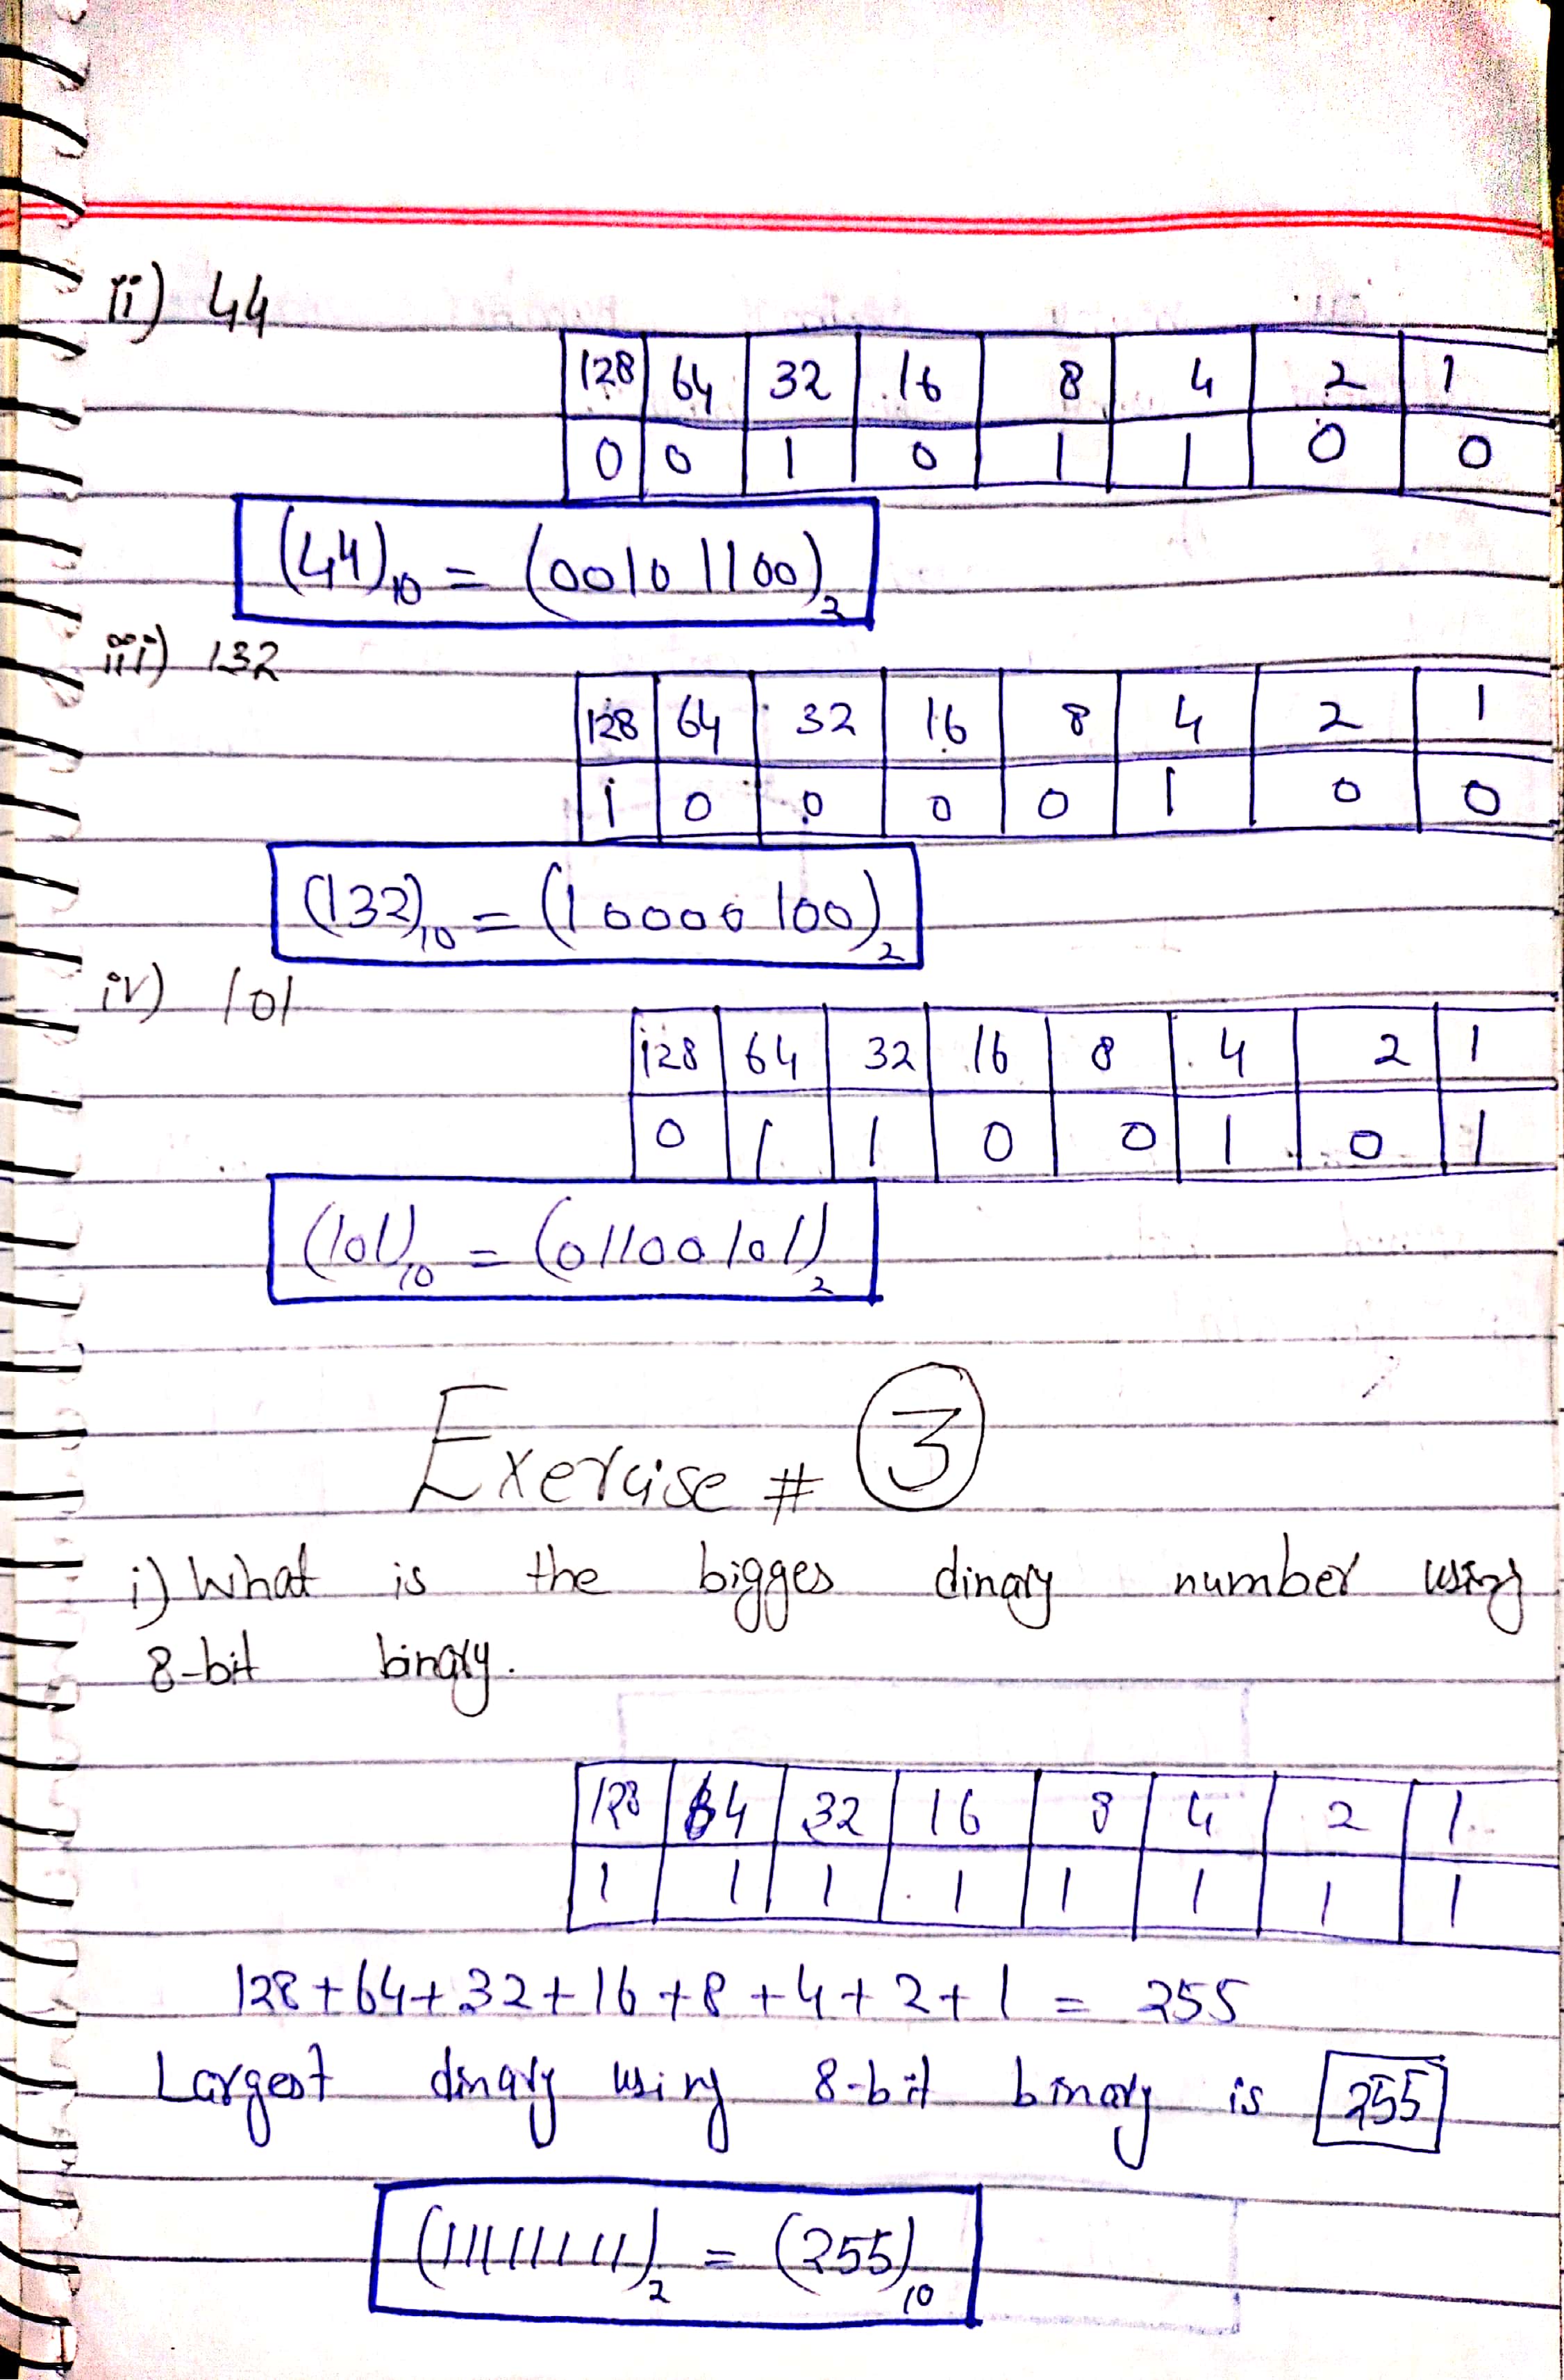 ii) 44
128 64 32 16 8 4 2 1
0 0 1 0 1 1 0 0
(44)10 = (00101100)2
iii) 132
128 64 32 16 8 4 2 1
1 0 0 0 0 1 0 0
(132)10 = (10000100)2
iv) 101
128 64 32 16 8 4 2 1
0 1 1 0 0 1 0 1
(101)10 = (01100101)2
Exercise # 3
i) What is the bigges dinary number using
8-bit binary.
128 64 32 16 8 4 2 1
1 1 1 1 1 1 1 1
128+64+32+16+8+4+2+1 = 255
Largest dinary using 8-bit binary is 255
(11111111)2 = (255)10